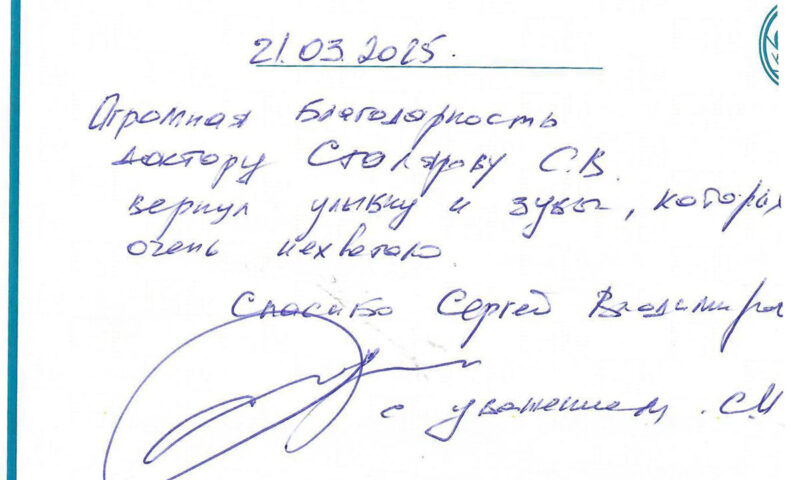 21.03.2025.
Огромная Благодарность
доктору Столярову С.В.
вернул улыбку и зубы, которых
очень нехватало
Спасибо Сергей Владимиро
с уважением. СМ